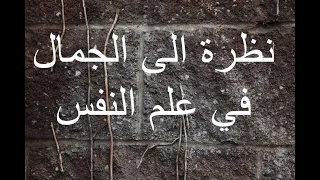 نظرة الى الجمال
في علم النفس